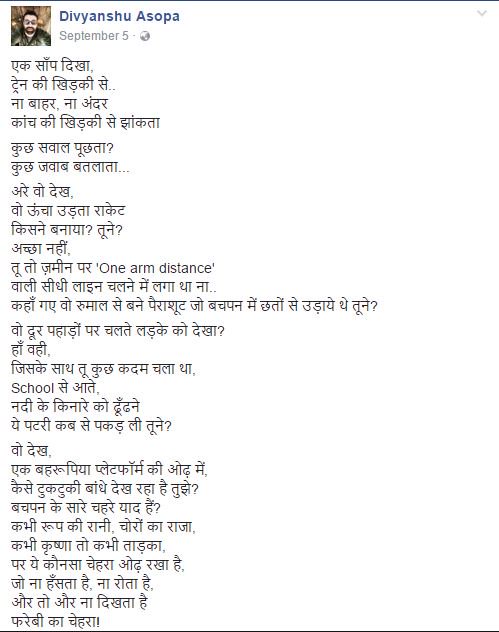 Divyanshu Asopa
September 5 ·
एक साँप दिखा,
ट्रेन की खिड़की से..
ना बाहर, ना अंदर
कांच की खिड़की से झांकता
कुछ सवाल पूछता?
कुछ जवाब बतलाता...
अरे वो देख,
वो ऊंचा उड़ता राकेट
किसने बनाया? तूने?
अच्छा नहीं,
तू तो ज़मीन पर 'One arm distance'
वाली सीधी लाइन चलने में लगा था ना..
कहाँ गए वो रुमाल से बने पैराशूट जो बचपन में छतों से उड़ाये थे तूने?
वो दूर पहाड़ों पर चलते लड़के को देखा?
हाँ वही,
जिसके साथ तू कुछ कदम चला था,
School से आते,
नदी के किनारे को ढूँढने
ये पटरी कब से पकड़ ली तूने?
वो देख,
एक बहरूपिया प्लेटफॉर्म की ओढ़ में,
कैसे टुकटुकी बांधे देख रहा है तुझे?
बचपन के सारे चहरे याद हैं?
कभी रूप की रानी, चोरों का राजा,
कभी कृष्णा तो कभी ताड़का,
पर ये कौनसा चेहरा ओढ़ रखा है,
जो ना हँसता है, ना रोता है,
और तो और ना दिखता है
फरेबी का चेहरा!